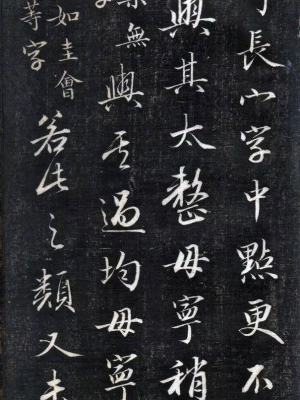 長心字中點更不
與其太整毋寧稍
無
與其過均毋寧
如圭會
等字
若此之類又未